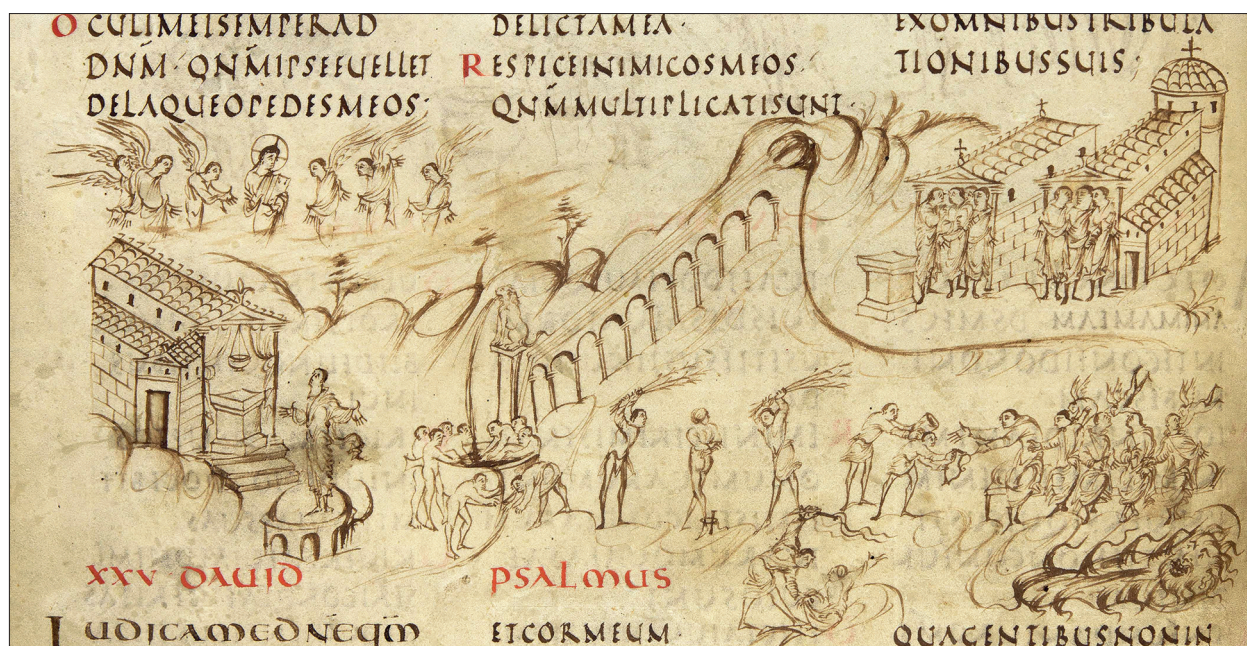 OCULIMEISEMPERAD
DN̄M·QN̄MIPSEEUELLET
DELAQUEOPEDESMEOS·
DELICTAMEA·
RESPICEINIMICOSMEOS·
QN̄MMULTIPLICATISUNT·
EXOMNIBUSTRIBULA
TIONIBUSSUIS;
XXV DAUID PSALMUS
IUDICAMEDNEQM̄
ETCORMEUM·
QUAGENTIBUSNONIN